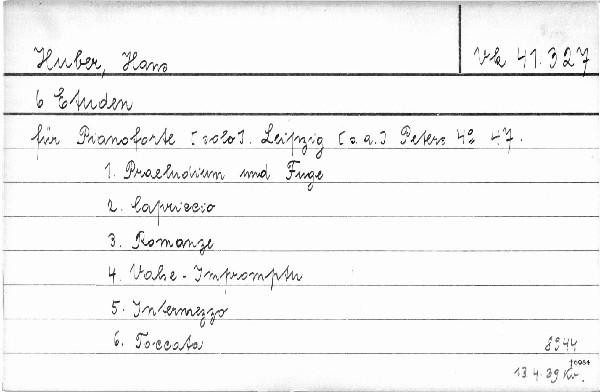 Huber, Hans
Vk 41.327
6 Etuden
für Pianoforte [solo]. Leipzig [o.a.] Peters 4º 47.
1. Praeludium und Fuge
2. Capriccio
3. Romanze
4. Valse-Impromptu
5. Intermezzo
6. Toccata
8944
10984
13.4.39 Kv.